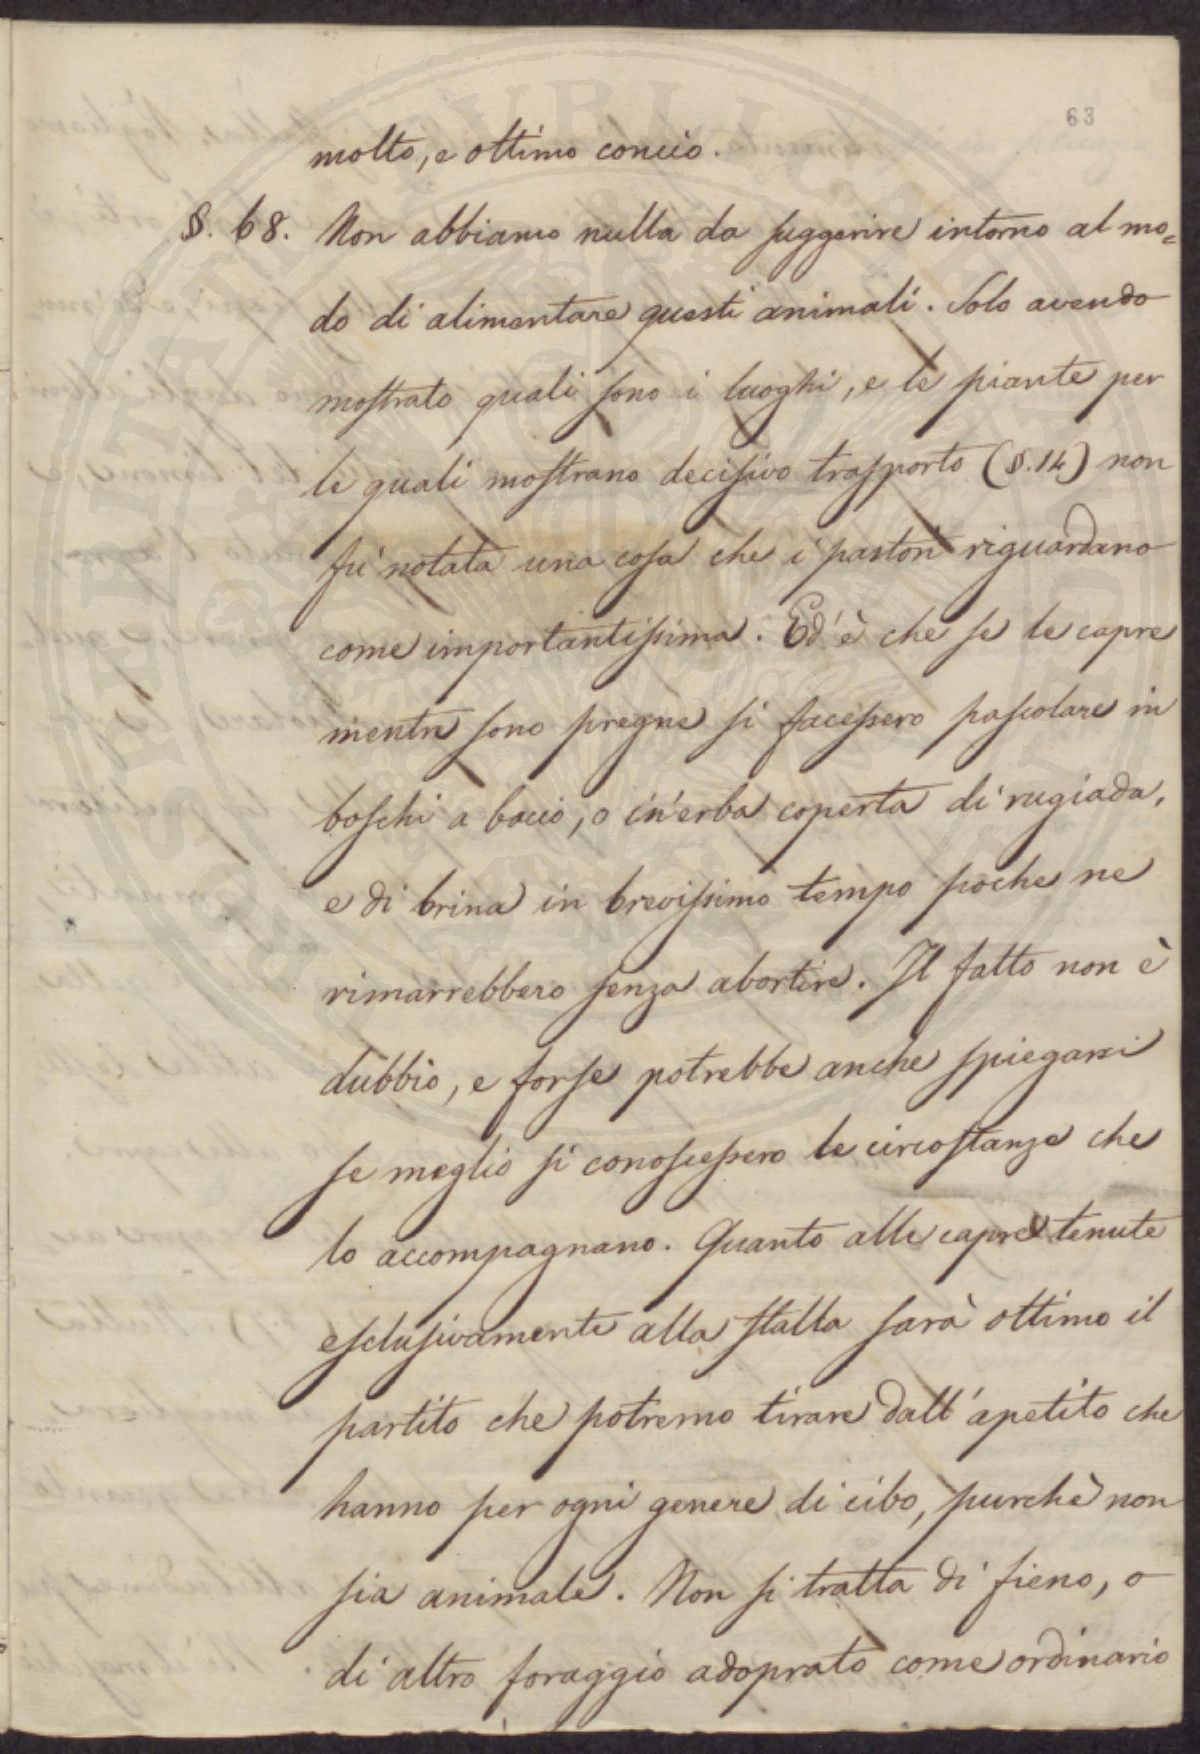 63
molto, e ottimo concio.
§. 68. Non abbiamo nulla da suggerire intorno al mo=
do di alimentare questi animali. Solo avendo
mostrato quali sono i luoghi, e le piante per
le quali mostrano decisivo trasporto (§. 14) non
fù notata una cosa che i pastori riguardano
come importantissima. Ed'è che se le capre
mentre sono pregne si facessero pascolare in
boschi a bacio, o in erba coperta di rugiada,
e di brina in brevissimo tempo poche ne
rimarrebbero senza abortire. Il fatto non è
dubbio, e forse potrebbe anche spiegarsi
se meglio si conoscessero le circostanze che
lo accompagnano. Quanto alle capre tenute
esclusivamente alla stalla sarà ottimo il
partito che potremo tirare dall'apetito che
hanno per ogni genere di cibo, purchè non
sia animale. Non si tratta di fieno, o
di altro foraggio adoprato come ordinario